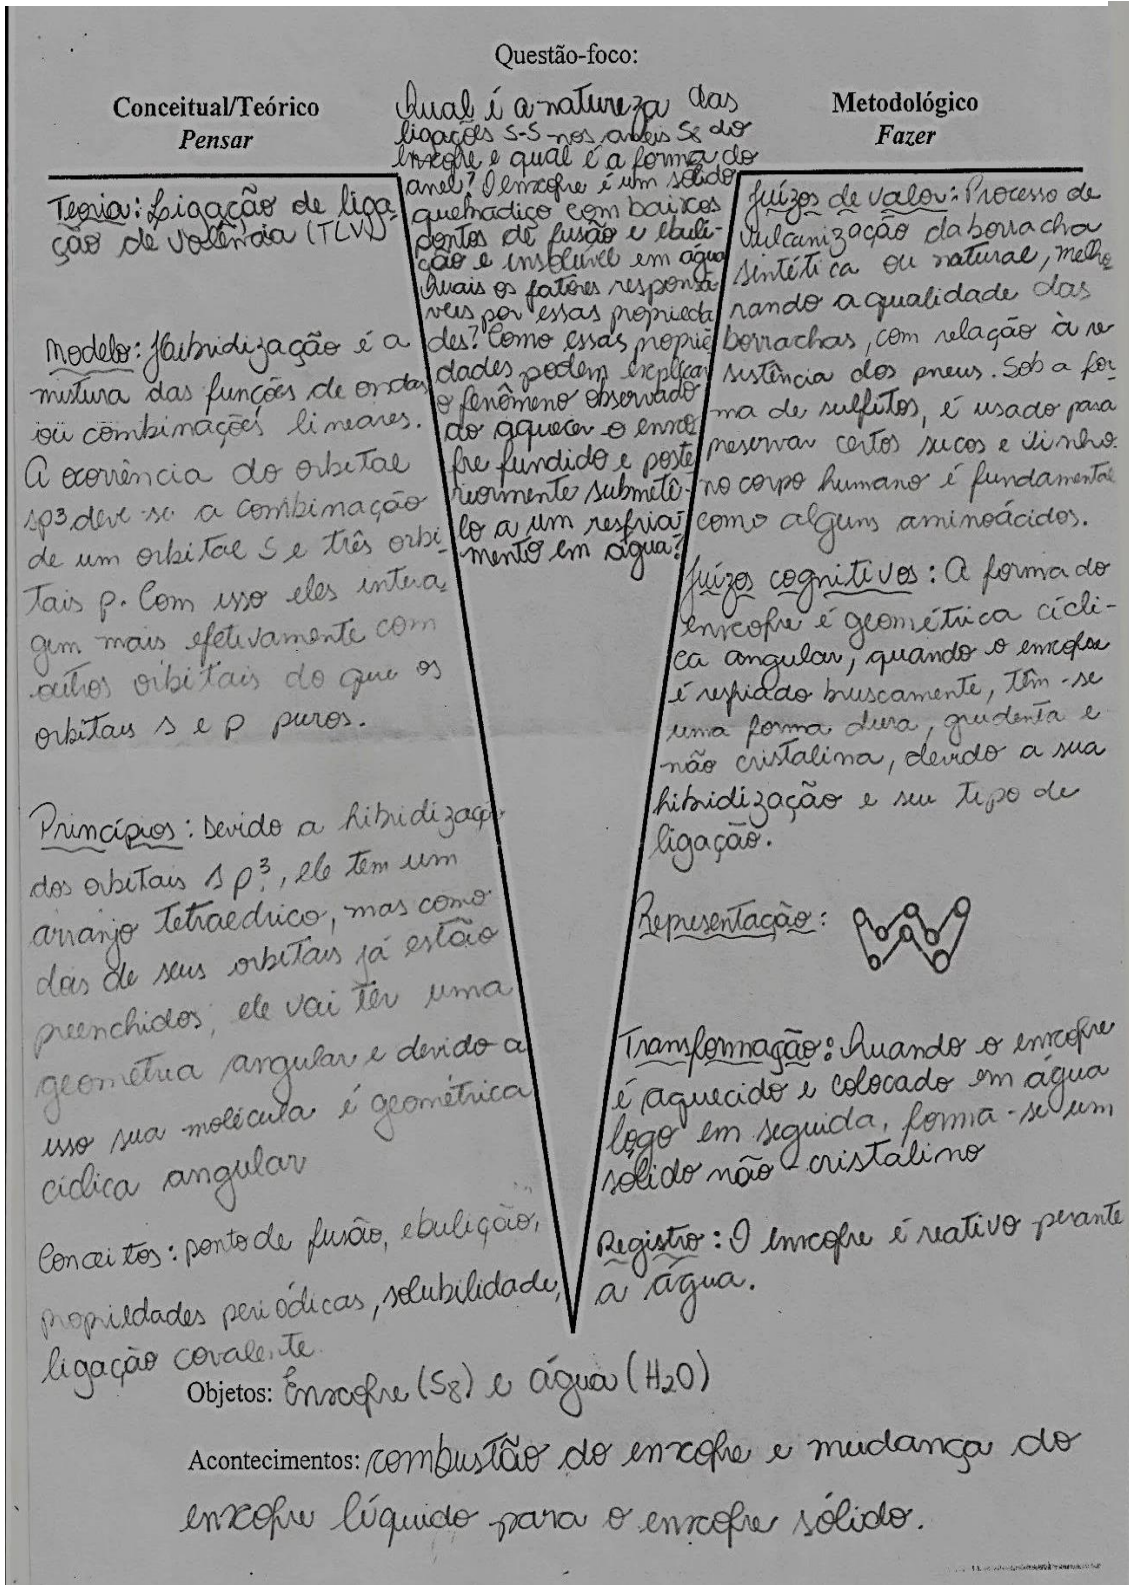 Questão-foco:
Conceitual/Teórico
Pensar
Qual é a natureza das
ligações S-S nos anéis S8 do
enxofre e qual é a forma do
anel? O enxofre é um sólido
quebradiço com baixos
pontos de fusão e ebuli-
ção e insolúvel em água
Quais os fatores responsá
veis por essas proprieda
des? Como essas proprie
dades podem explicar
o fenômeno observado
do aquecer o enxo
fre fundido e poste
riormente submetê-
lo a um resfria-
mento em água?
Metodológico
Fazer
Teoria: Ligação de liga-
ção de valência (TLV)
Modelo: Hibridização é a
mistura das funções de ondas
ou combinações lineares.
A ocorrência do orbital
sp3 deve-se a combinação
de um orbital S e três orbi-
tais p. Com isso eles intera-
gem mais efetivamente com
outros orbitais do que os
orbitais s e p puros.
Princípios: Devido a hibridização
dos orbitais sp³, ele tem um
arranjo tetraédrico, mas como
dois de seus orbitais já estão
preenchidos, ele vai ter uma
geometria angular e devido a
isso sua molécula é geométrica
cíclica angular
Conceitos: ponto de fusão, ebulição,
propriedades periódicas, solubilidade,
ligação covalente.
Juízos de valor: Processo de
vulcanização da borracha
sintética ou natural, melho
rando a qualidade das
borrachas, com relação à re
sistência dos pneus. Sob a for
ma de sulfitos, é usado para
preservar certos sucos e vinho.
no corpo humano é fundamental
como alguns aminoácidos.
Juízos cognitivos: A forma do
enxofre é geométrica cícli-
ca angular, quando o enxofre
é resfriado bruscamente, têm-se
uma forma dura, grudenta e
não cristalina, devido a sua
hibridização e seu tipo de
ligação.
Representação:
Transformação: Quando o enxofre
é aquecido e colocado em água
logo em seguida, forma-se um
sólido não-cristalino
Registro: O enxofre é reativo perante
a água.
Objetos: Enxofre (S8) e água (H2O)
Acontecimentos: combustão do enxofre e mudança do
enxofre líquido para o enxofre sólido.